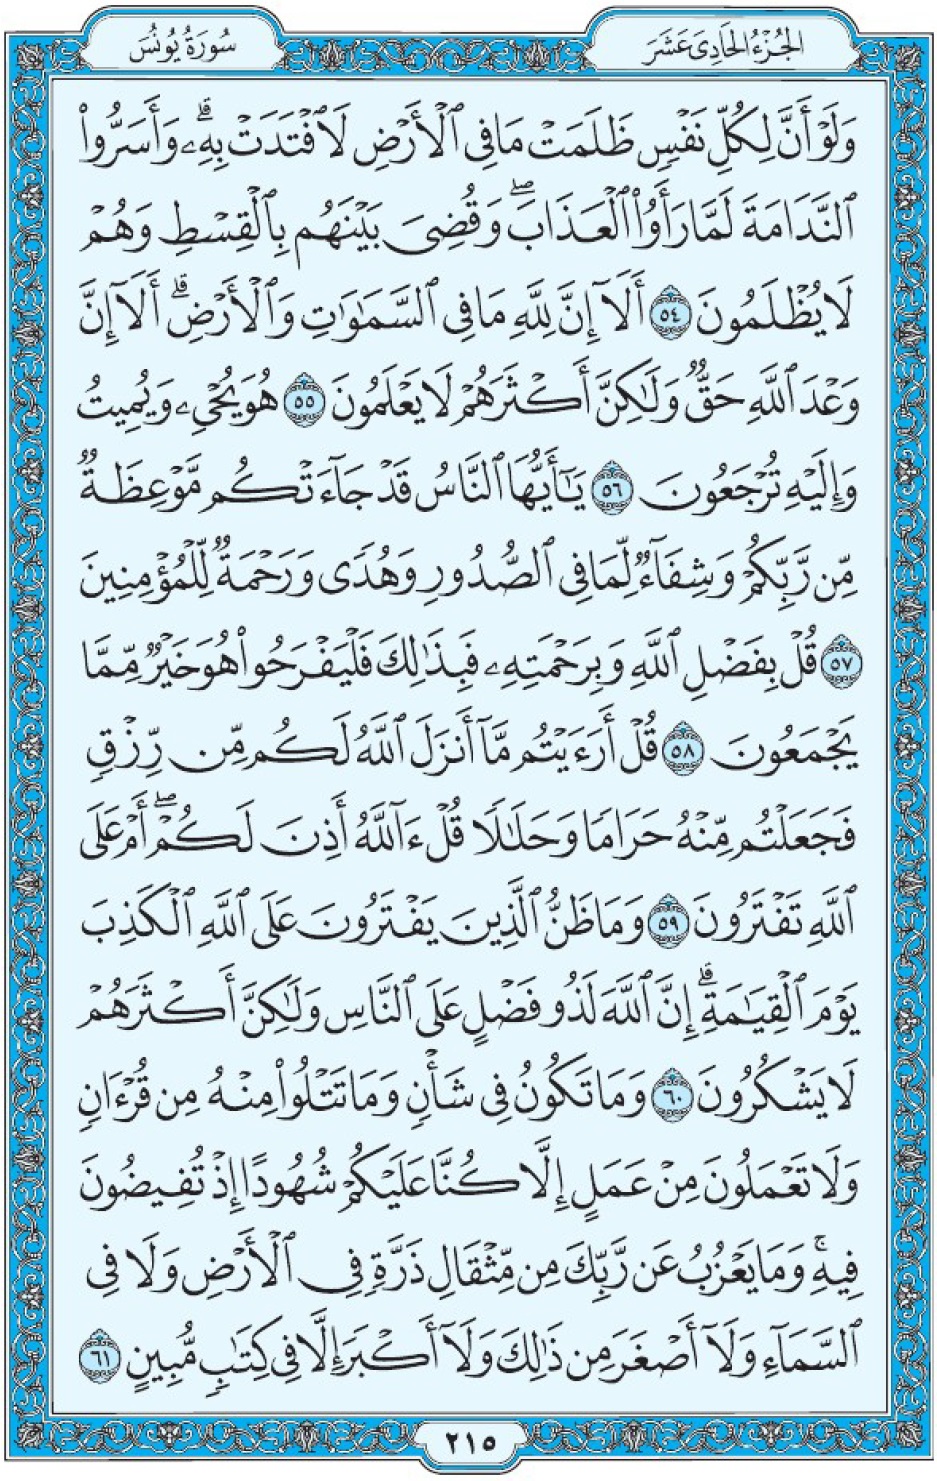 الجُزْءُ الحَادِىَ عَشَرَ
سُورَةُ يُونُسَ
وَلَوْ أَنَّ لِكُلِّ نَفْسٍ ظَلَمَتْ مَا فِى ٱلْأَرْضِ لَٱفْتَدَتْ بِهِۦۗ وَأَسَرُّوا۟
ٱلنَّدَامَةَ لَمَّا رَأَوُا۟ ٱلْعَذَابَۖ وَقُضِىَ بَيْنَهُم بِٱلْقِسْطِ وَهُمْ
لَا يُظْلَمُونَ ٥٤ أَلَآ إِنَّ لِلَّهِ مَا فِى ٱلسَّمَٰوَٰتِ وَٱلْأَرْضِۗ أَلَآ إِنَّ
وَعْدَ ٱللَّهِ حَقٌّ وَلَٰكِنَّ أَكْثَرَهُمْ لَا يَعْلَمُونَ ٥٥ هُوَ يُحْىِۦ وَيُمِيتُ
وَإِلَيْهِ تُرْجَعُونَ ٥٦ يَٰٓأَيُّهَا ٱلنَّاسُ قَدْ جَآءَتْكُم مَّوْعِظَةٌ
مِّن رَّبِّكُمْ وَشِفَآءٌ لِّمَا فِى ٱلصُّدُورِ وَهُدًى وَرَحْمَةٌ لِّلْمُؤْمِنِينَ
٥٧ قُلْ بِفَضْلِ ٱللَّهِ وَبِرَحْمَتِهِۦ فَبِذَٰلِكَ فَلْيَفْرَحُوا۟ هُوَ خَيْرٌ مِّمَّا
يَجْمَعُونَ ٥٨ قُلْ أَرَءَيْتُم مَّآ أَنزَلَ ٱللَّهُ لَكُم مِّن رِّزْقٍ
فَجَعَلْتُم مِّنْهُ حَرَامًا وَحَلَٰلًا قُلْ ءَآللَّهُ أَذِنَ لَكُمْۖ أَمْ عَلَى
ٱللَّهِ تَفْتَرُونَ ٥٩ وَمَا ظَنُّ ٱلَّذِينَ يَفْتَرُونَ عَلَى ٱللَّهِ ٱلْكَذِبَ
يَوْمَ ٱلْقِيَٰمَةِۗ إِنَّ ٱللَّهَ لَذُو فَضْلٍ عَلَى ٱلنَّاسِ وَلَٰكِنَّ أَكْثَرَهُمْ
لَا يَشْكُرُونَ ٦٠ وَمَا تَكُونُ فِى شَأْنٍ وَمَا تَتْلُوا۟ مِنْهُ مِن قُرْءَانٍ
وَلَا تَعْمَلُونَ مِنْ عَمَلٍ إِلَّا كُنَّا عَلَيْكُمْ شُهُودًا إِذْ تُفِيضُونَ
فِيهِۚ وَمَا يَعْزُبُ عَن رَّبِّكَ مِن مِّثْقَالِ ذَرَّةٍ فِى ٱلْأَرْضِ وَلَا فِى
ٱلسَّمَآءِ وَلَآ أَصْغَرَ مِن ذَٰلِكَ وَلَآ أَكْبَرَ إِلَّا فِى كِتَٰبٍ مُّبِينٍ ٦١
٢١٥